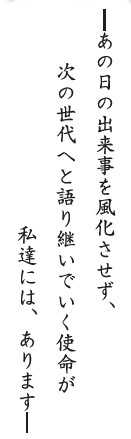 ―あの日の出来事を風化させず、
次の世代へと語り継いでいく使命が
私達には、あります―